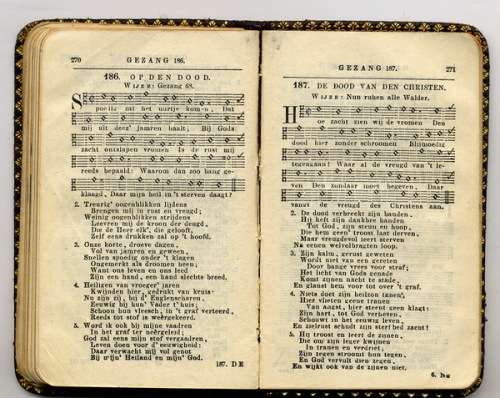 270
GEZANG 186.
186. OP DEN DOOD.
WIJZE: Gezang 68.
Spoedig zal het uurtje komen, Dat
mij uit deez' jamren haalt, Bij Gods
zacht ontslapen vromen Is de rust mij
reeds bepaald: Waarom dan zoo bang ge-
klaagd, Daar mijn heil in 't sterven daagt?
2. Treurig' oogenblikken lijdens
Brengen mij in rust en vreugd;
Weinig oogenblikken strijdens
Leveren mij de kroon der deugd,
Die de Heer elk', die gelooft,
Zelf eens drukken zal op 't hoofd.
3. Onze korte, droeve dagen,
Vol van jamren en geween,
Snellen spoedig onder 't klagen
Ongemerkt als droomen heen;
Want ons leven en ons leed
Zijn een hand, een hand slechts breed.
4. Heiligen van vroeger' jaren
Kwijnden hier, gedrukt van kruis
Nu zijn zij, bij d' Englenscharen,
Eeuwig bij hun' Vader t' huis;
Schoon hun vleesch, in 't graf verteerd,
Reeds tot stof is weêrgekeerd.
5. Word ik ook bij mijne vaadren
In het graf ter neêrgeleid;
God zal eens mijn stof vergaadren,
Leven doen voor d' eeuwigheid;
Daar verwacht mij vol genot
Bij mijn' Heiland en mijn' God.
187. DE
GEZANG 187.
271
187. DE DOOD VAN DEN CHRISTEN.
WIJZE: Nun ruhen alle Wälder.
Hoe zacht zien wij de vromen Den
dood hier zonder schroomen Blijmoedig
tegengaan! Waar al de vreugd van 't le-
ven Den zondaar moet begeven, Daar
vangt de vreugd des Christens aan.
2. De dood verbreekt zijn banden,
Hij heft zijn dankbre handen
Tot God, zijn steun en hoop,
Die hem geen' troost laat derven,
Maar vreugdevol leert sterven
Na eenen welvolbragten loop.
3. Zijn kalm, gerust geweten
Wordt niet van een gereten
Door bange vrees voor straf;
Het licht van Gods genade
Komt zijnen nacht te stade,
En glanst hem voor tot over 't graf.
4. Niets doet zijn heilzon tanen,
Hier vlieten geene tranen
Van angst, hier steent geen klagt:
Zijn hart, tot God verheven,
Schouwt in het eeuwig leven,
En zielrust schuilt zijn sterfbed zacht!
5. Hij troost en leert de zijnen,
Die om zijn leger kwijnen
In tranen en verdriet;
Zijn zegen stroomt hun tegen,
En God vervult dien zegen,
En wijkt ook van de zijnen niet.
6. Nu